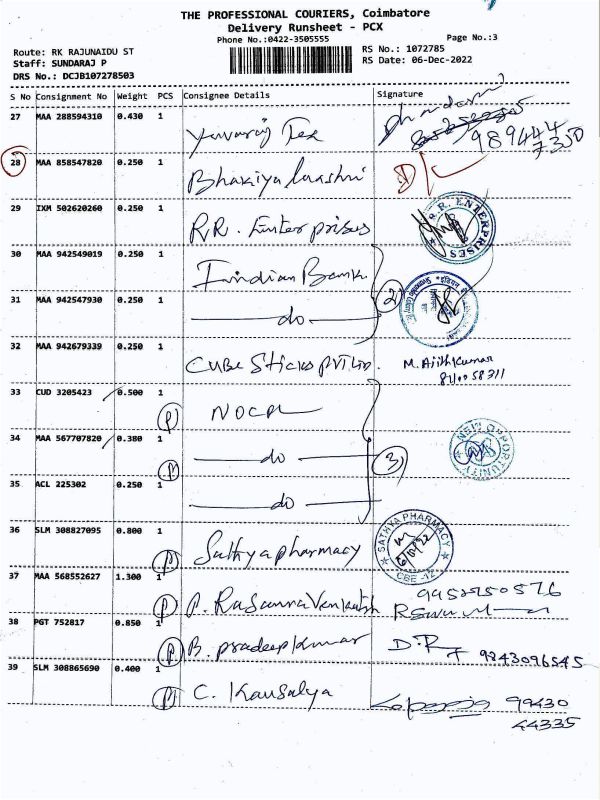 THE PROFESSIONAL COURIERS, Coimbatore
Delivery Runsheet - PCX
Phone No.:0422-3505555
Page No.:3
Route: RK RAJUNAIDU ST
Staff: SUNDARAJ P
DRS No.: DCJB107278503
RS No.: 1072785
RS Date: 06-Dec-2022
S No Consignment No Weight PCS Consignee Details Signature
27 MAA 288594310 0.430 1 Yuvaraj Tex
989444
7350
28 MAA 858547820 0.250 1 Bhakiya
29 IXM 502620260 0.250 1 R.R. Enterprises
R.R. ENTERPRISES
30 MAA 942549019 0.250 1 Indian Bank
2
31 MAA 942547930 0.250 1 do
32 MAA 942679339 0.250 1 Cube Sticks Pvt Ltd. M. Ajithkumar
33 CUD 3205423 0.500 1 P NOCPL
34 MAA 567707820 0.380 1 P do 3
NEW OPPORTUNITY
35 ACL 225302 0.250 1 do
36 SLM 308827095 0.800 1 P Sathya pharmacy
SATHYA PHARMACY
6/12/22
CBE -12
37 MAA 568552627 1.300 1 P P. Rasanna Venkatesh
9952750576
38 PGT 752817 0.850 1 P B. pradeep Kumar D.R 9843096545
39 SLM 308865690 0.400 1 P C. Kausalya 99430
44335